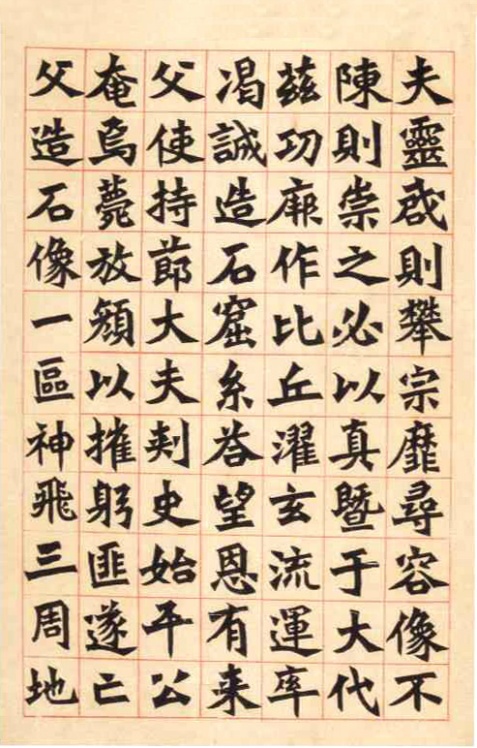 夫靈啟則攀宗靡尋容像不
陳則崇之必以真暨于大代
兹功厥作比丘濯玄流運率
渴誠造石窟系荅望恩有来
父使持節大夫刾史始平公
奄焉薨放顏以摧躬匪遂亡
父造石像一區神飛三周地